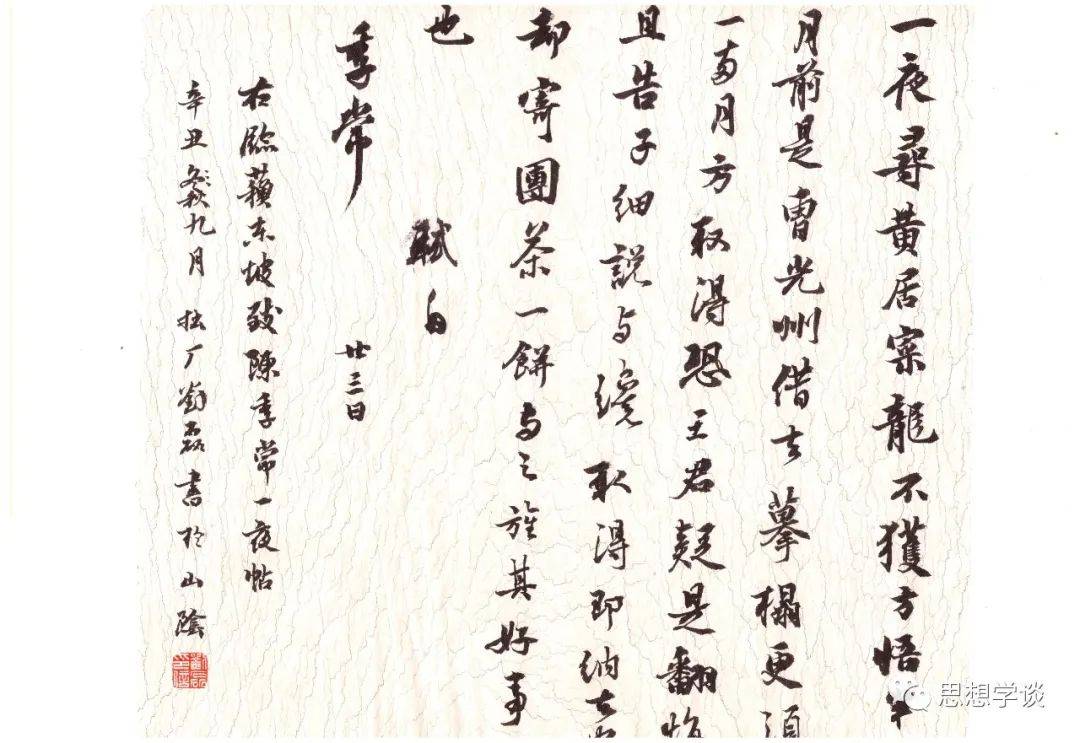 一夜尋黄居寀龍不獲方悟半
月前是曹光州借去摹榻更須
一兩月方取得恐王君疑是翻悔
且告子細説与纔取得即納去
却寄團茶一餅与之旌其好事
也 軾白
季常 廿三日
右臨蘓东坡致陳季常一夜帖
辛丑秋九月 拙厂劉磊書於山陰
思想学谈